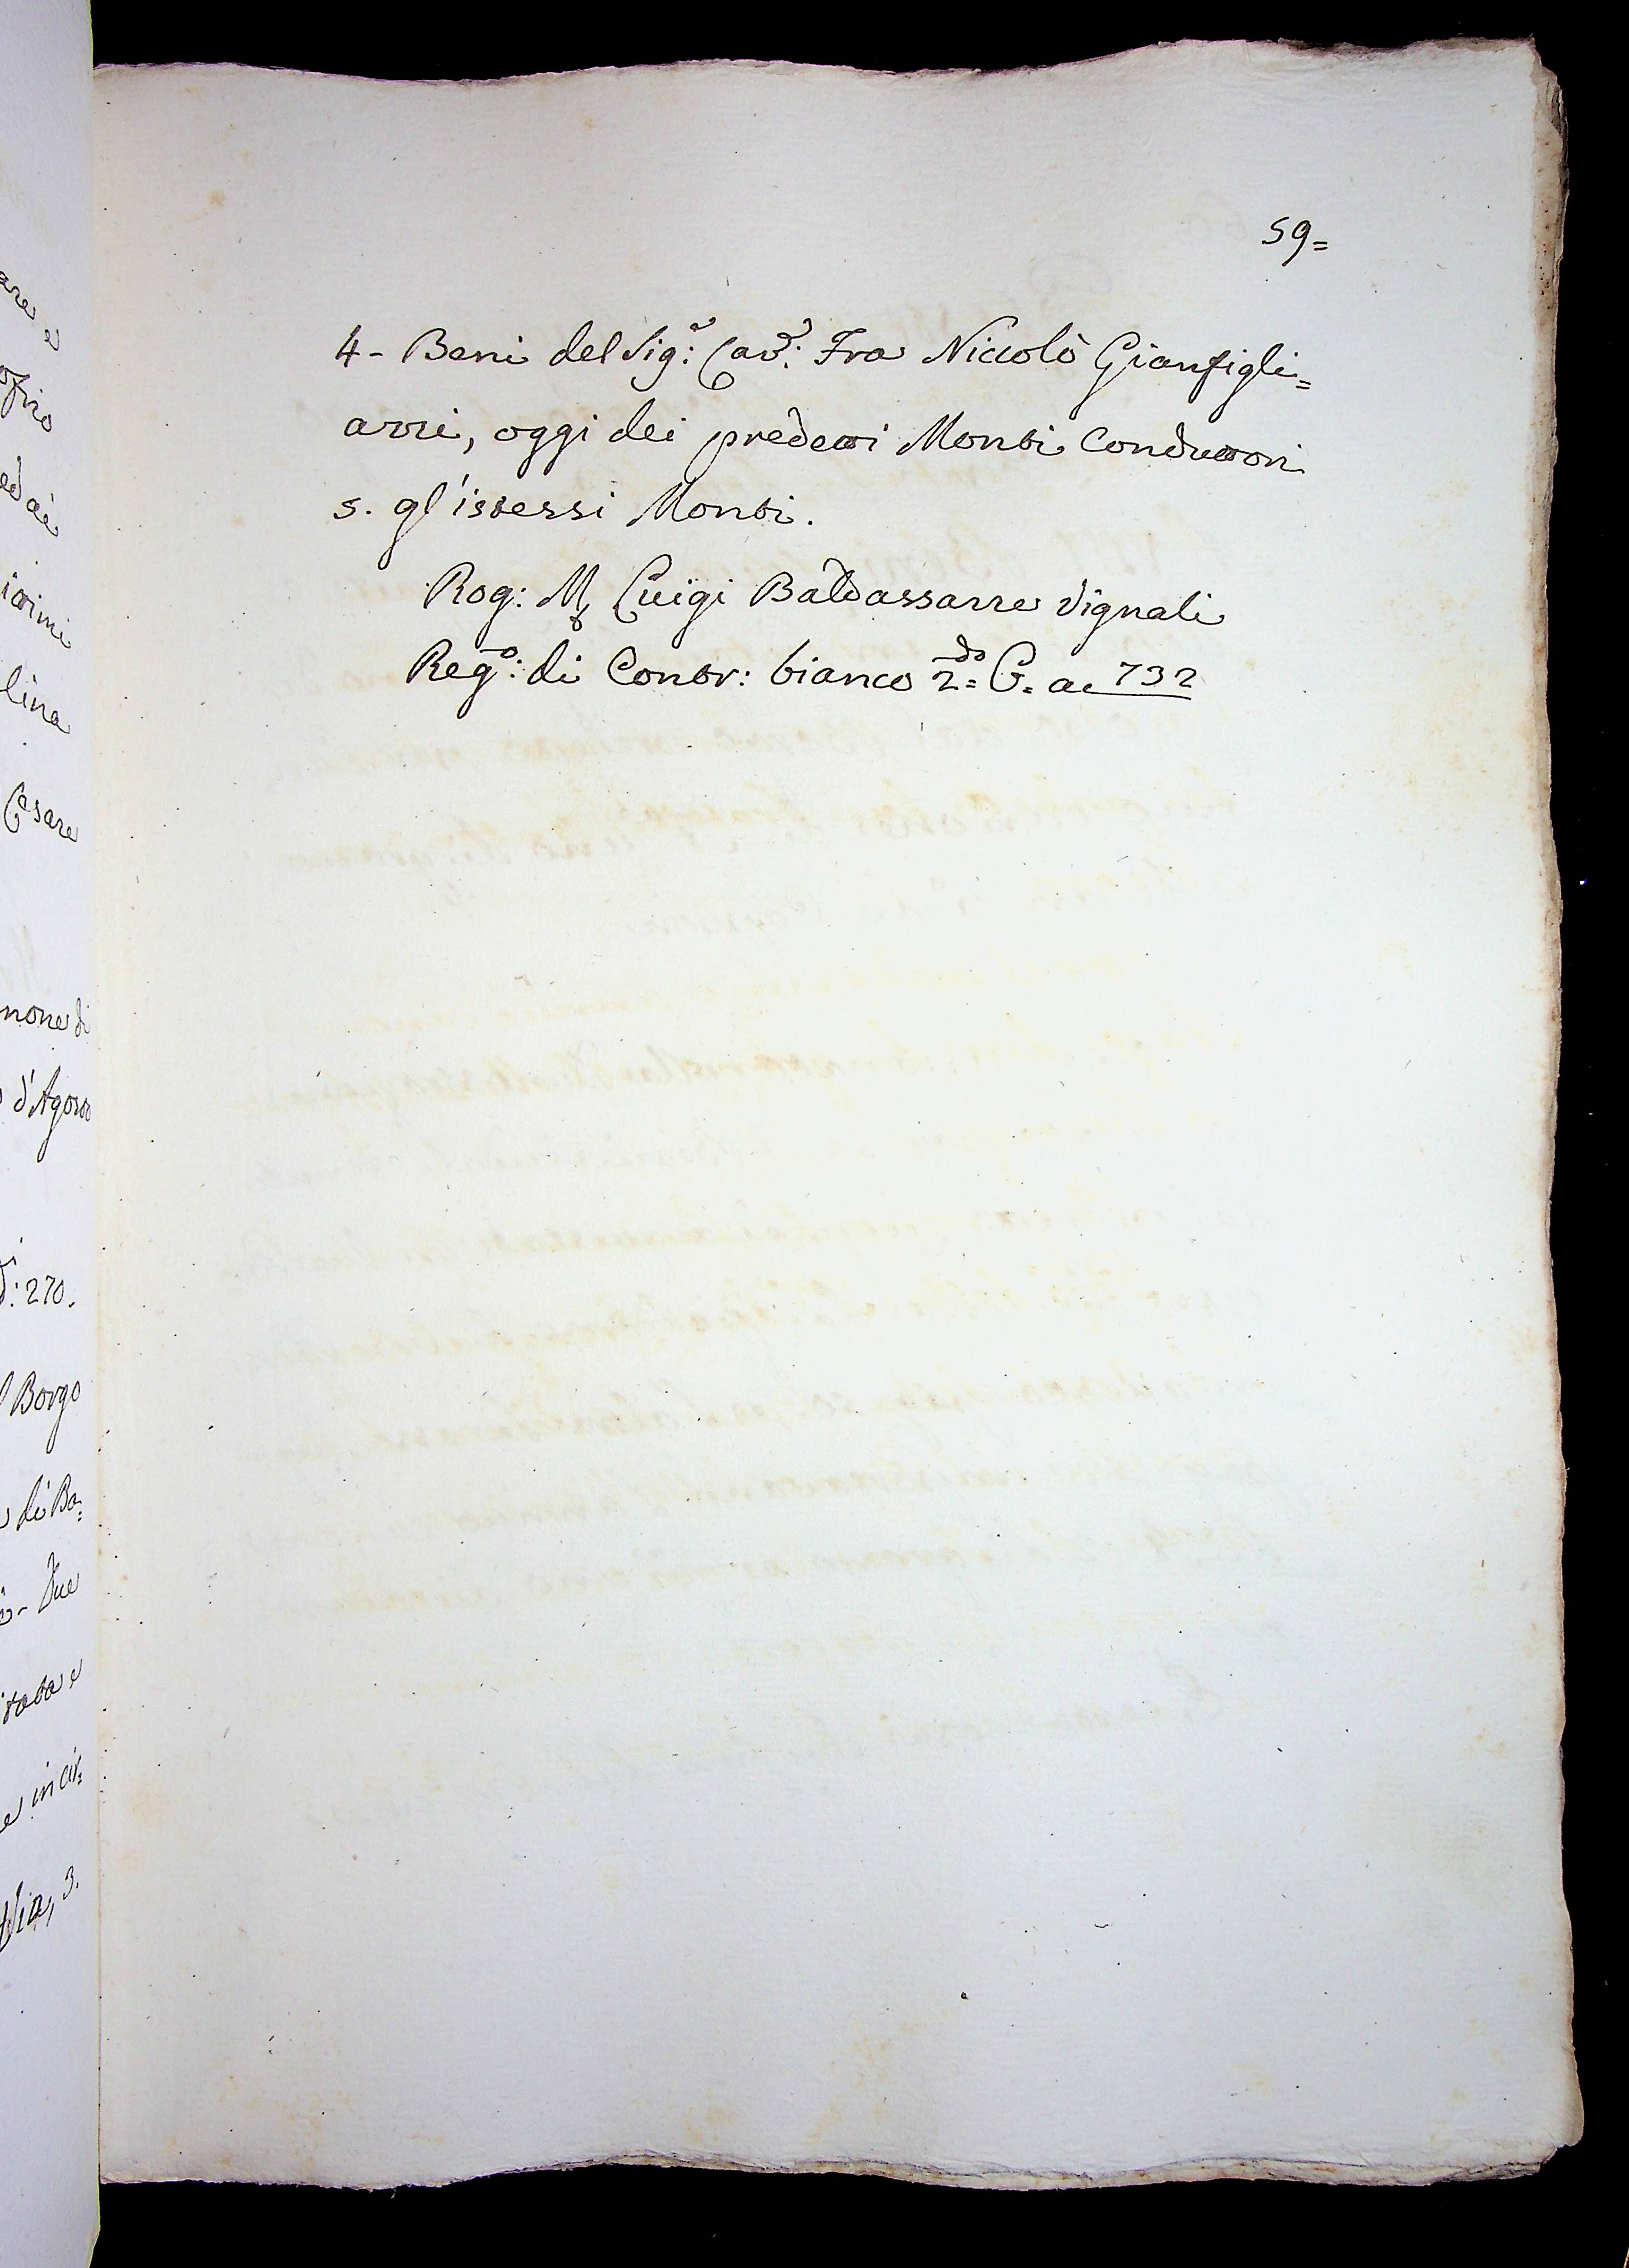 59=
4- Beni del Sig:r Cav:r Fra Niccolò Gianfigli=
azzi, oggi dei predetti Monti Conduttori
5. gl'istessi Monti.
Rog: M Luigi Baldassarre Vignali
Reg:o di Contr: bianco 2:do G. a 732
Cesare
d'Agosto
270.
Borgo
di Ba:
Due
in cir:
Via, 3.